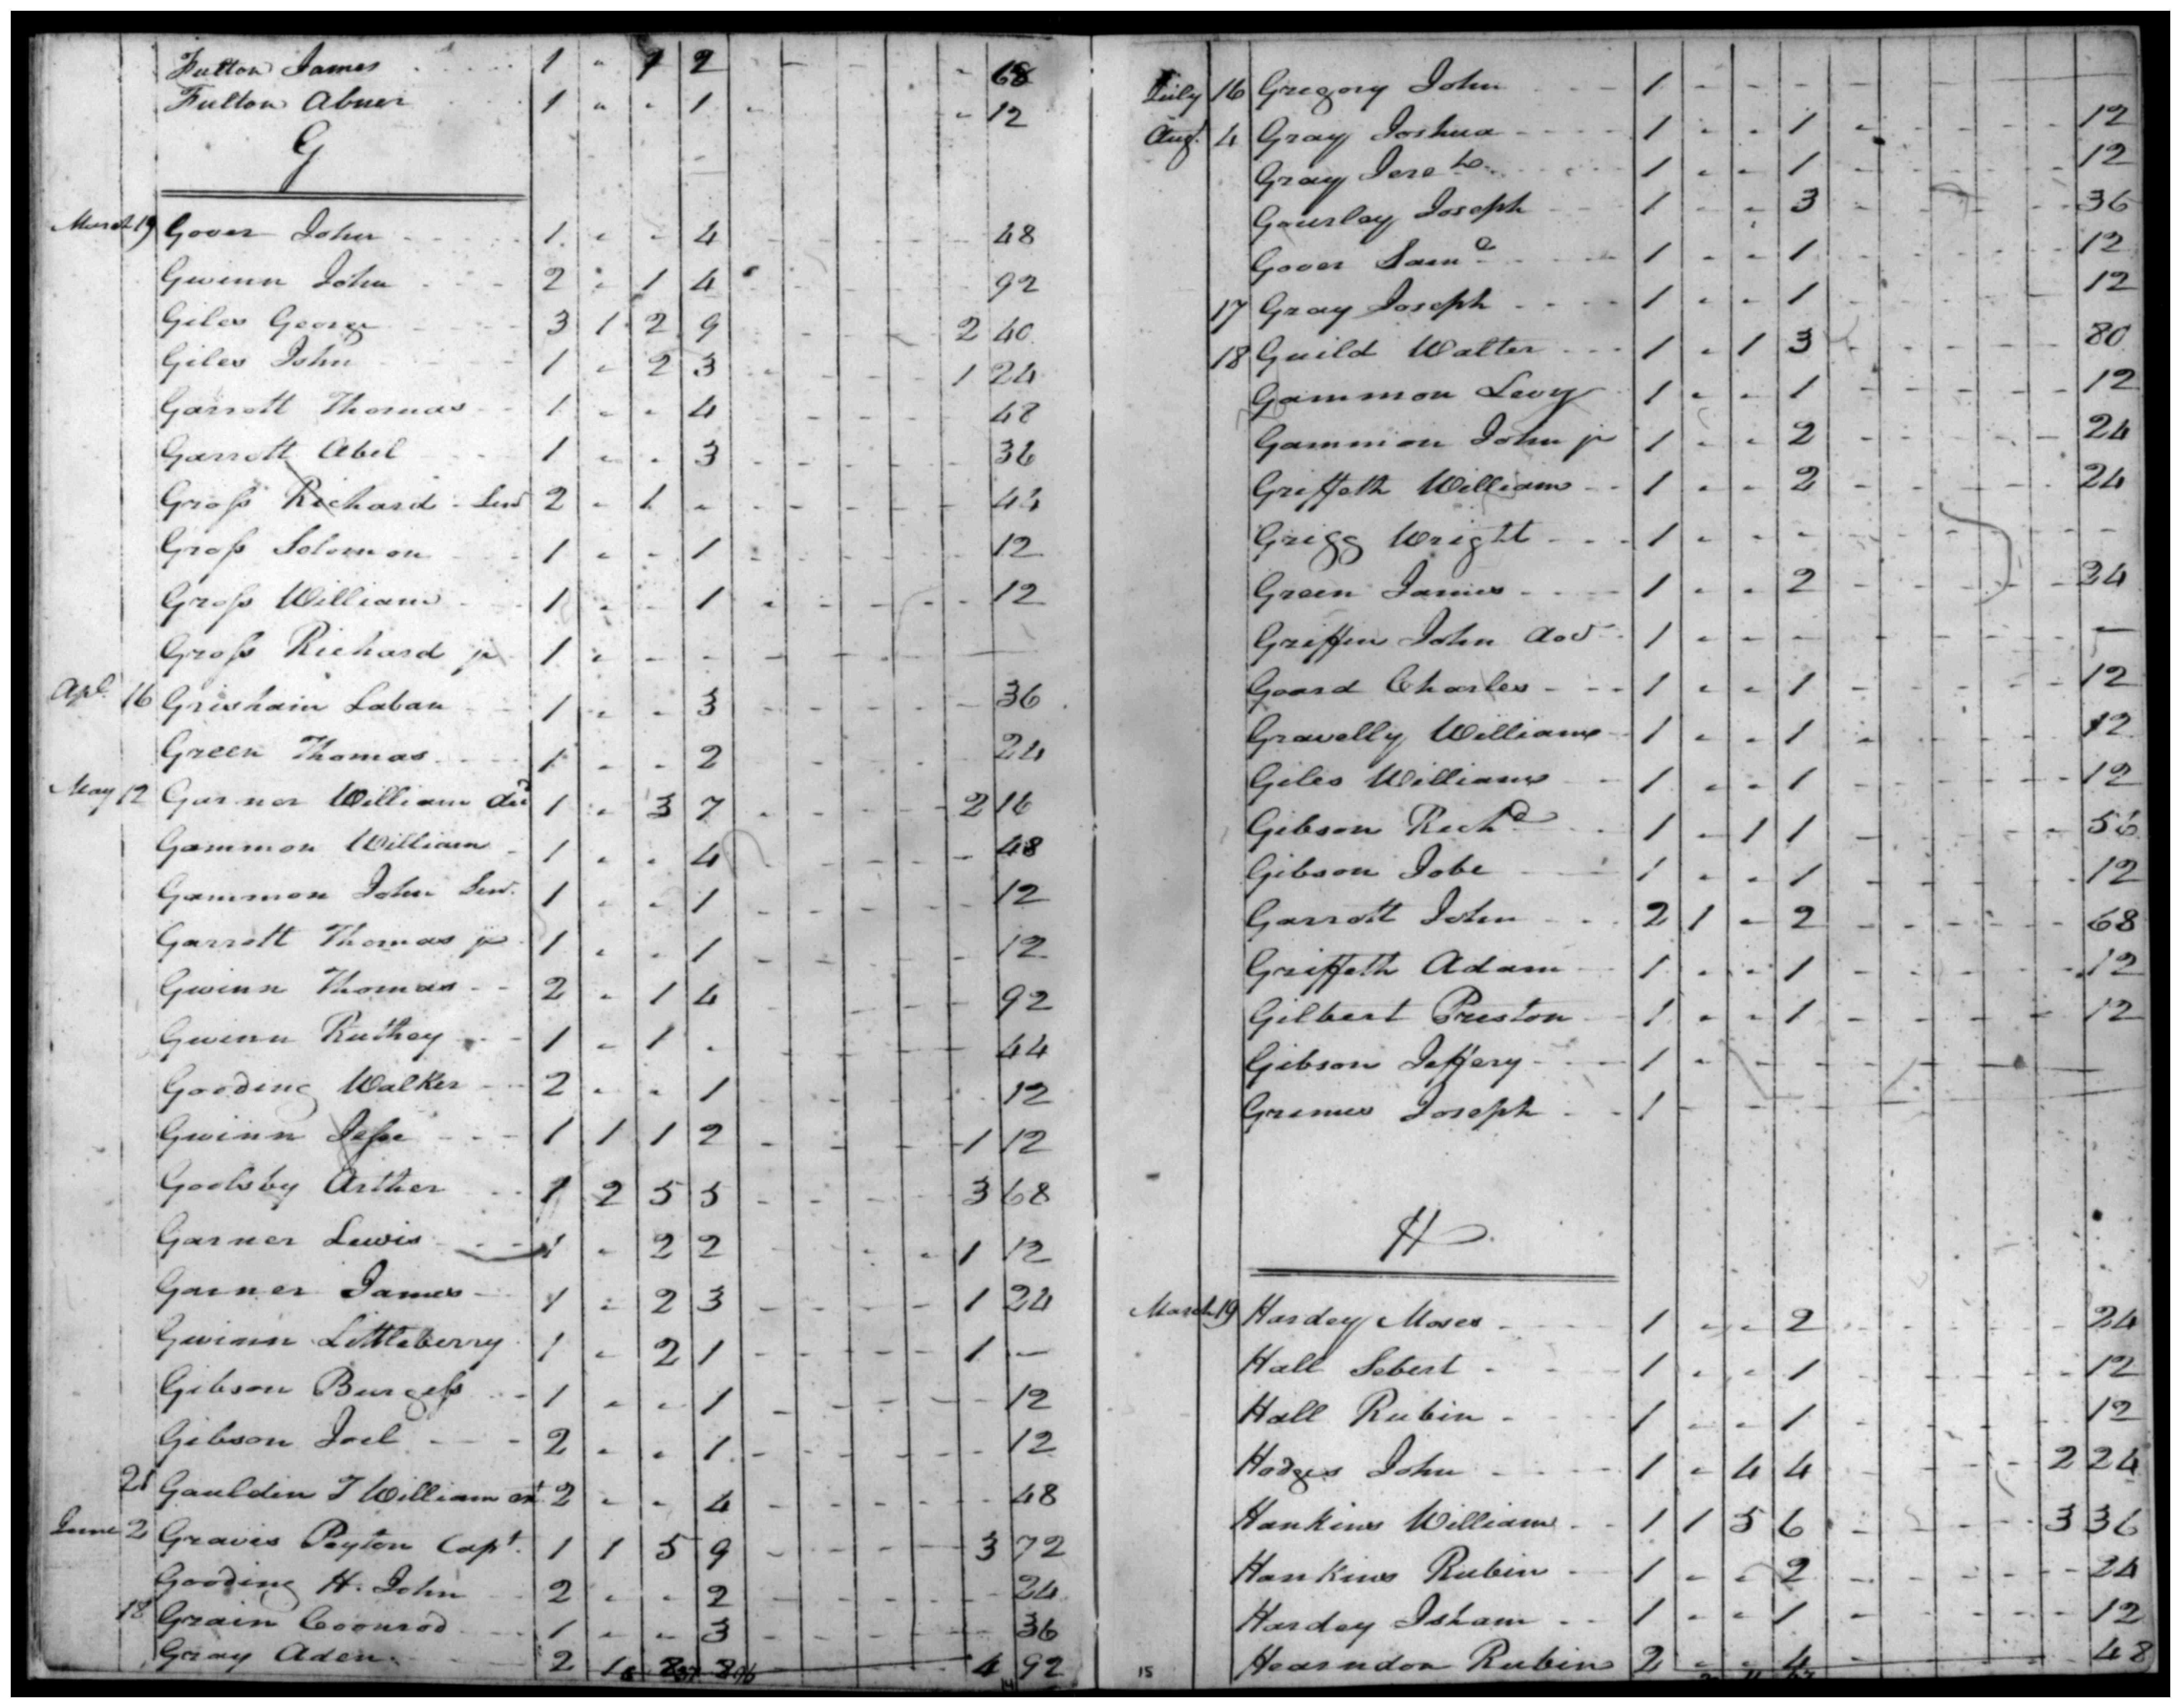 Fulton James 1 - 1 2 - - - 68
Fulton Abner 1 - - 1 - - 12
G
March 19 Gover John 1 - - 4 - - - - 48
Gwinn John 2 - 1 4 92
Giles George 3 1 2 9 - - 2 40
Giles John 1 - 2 3 - - - - 1 24
Garrott Thomas 1 - - 4 - - - - 48
Garrott Abel 1 - - 3 - - - - - 36
Groſs Richard Senr 2 - 1 - - - - - - 44
Groſs Solomon 1 - - 1 - - - - - 12
Groſs William 1 - - 1 - - - - - 12
Groſs Richard jr 1 - - - - - - -
Apl. 16 Grisham Laban 1 - - 3 - - - - - 36
Green Thomas 1 - - 2 - - - 24
May 12 Garner William 1 - 3 7 - - - - 2 16
Gammon William 1 - - 4 - - - - 48
Gammon John Senr. 1 - - 1 - - - - - 12
Garrett Thomas jr 1 - - 1 - - - - - 12
Gwinn Thomas 2 - 1 4 - - - - 92
Gwinn Ruthey 1 - 1 - - - - - - 44
Gooding Walker 2 - - 1 - - - - - 12
Gwinn Jeſse 1 1 1 2 - - - - 1 12
Goolsby Arther 1 2 5 5 - - - - 3 68
Garner Lewis 1 - 2 2 - - - 1 12
Garner James 1 - 2 3 - - - - 1 24
Gwinn Littleberry 1 - 2 1 - - - - 1 -
Gibson Burgeſs 1 - - 1 - - - - - 12
Gibson Joel 2 - - 1 - - - - - 12
21 Gauldin T William 2 - - 4 - - - - - 48
June 2 Graves Peyton Capt. 1 1 5 9 - - - - 3 72
Gooding H. John 2 - - 2 - - - - - 24
18 Grain Coonrod 1 - - 3 - - - - - 36
Gray Aden 2 1 8 8 4 92
July 16 Gregory John 1 - - - - - - -
Augt. 4 Gray Joshua 1 - - 1 - - - - - 12
Gray Jereh. 1 - - 1 - - - - - 12
Gourley Joseph 1 - - 3 - - - - - 36
Gover Saml 1 - - 1 - - - - - 12
17 Gray Joseph 1 - - 1 - - - - - 12
18 Guild Walter 1 - 1 3 - - - - - 80
Gammon Levy 1 - - 1 - - - - - 12
Gammon John jr 1 - - 2 - - - - - 24
Griffeth William 1 - - 2 - - - - - 24
Grigg Wright 1 - - - - - - - - -
Green James 1 - - 2 - - - - - 24
Griffin John 1 - - - - - - - - -
Goard Charles 1 - - 1 - - - - - 12
Gravelly William 1 - - 1 - - - - - 12
Giles William 1 - - 1 - - - - - 12
Gibson Richd 1 - 1 1 - - - - - 56
Gibson Jobe 1 - - 1 - - - - - 12
Garrott John 2 1 - 2 - - - - - 68
Griffeth Adam 1 - - 1 - - - - - 12
Gilbert Preston 1 - - 1 - - - - - 12
Gibson Jeffery 1 - - - - -
Grimes Joseph 1 - - - - - - - -
H
March 19 Hardey Moses 1 - - 2 - - - - - 24
Hall Sebert 1 - - 1 - - - - - 12
Hall Rubin 1 - - 1 - - - - - 12
Hodges John 1 - 4 4 - - - - 2 24
Hankins William 1 1 5 6 - - - - 3 36
Hankins Rubin 1 - - 2 - - - - - 24
Hardey Isham 1 - - 1 - - - - - 12
15 Hearndon Rubin 2 - - 4 - - 48